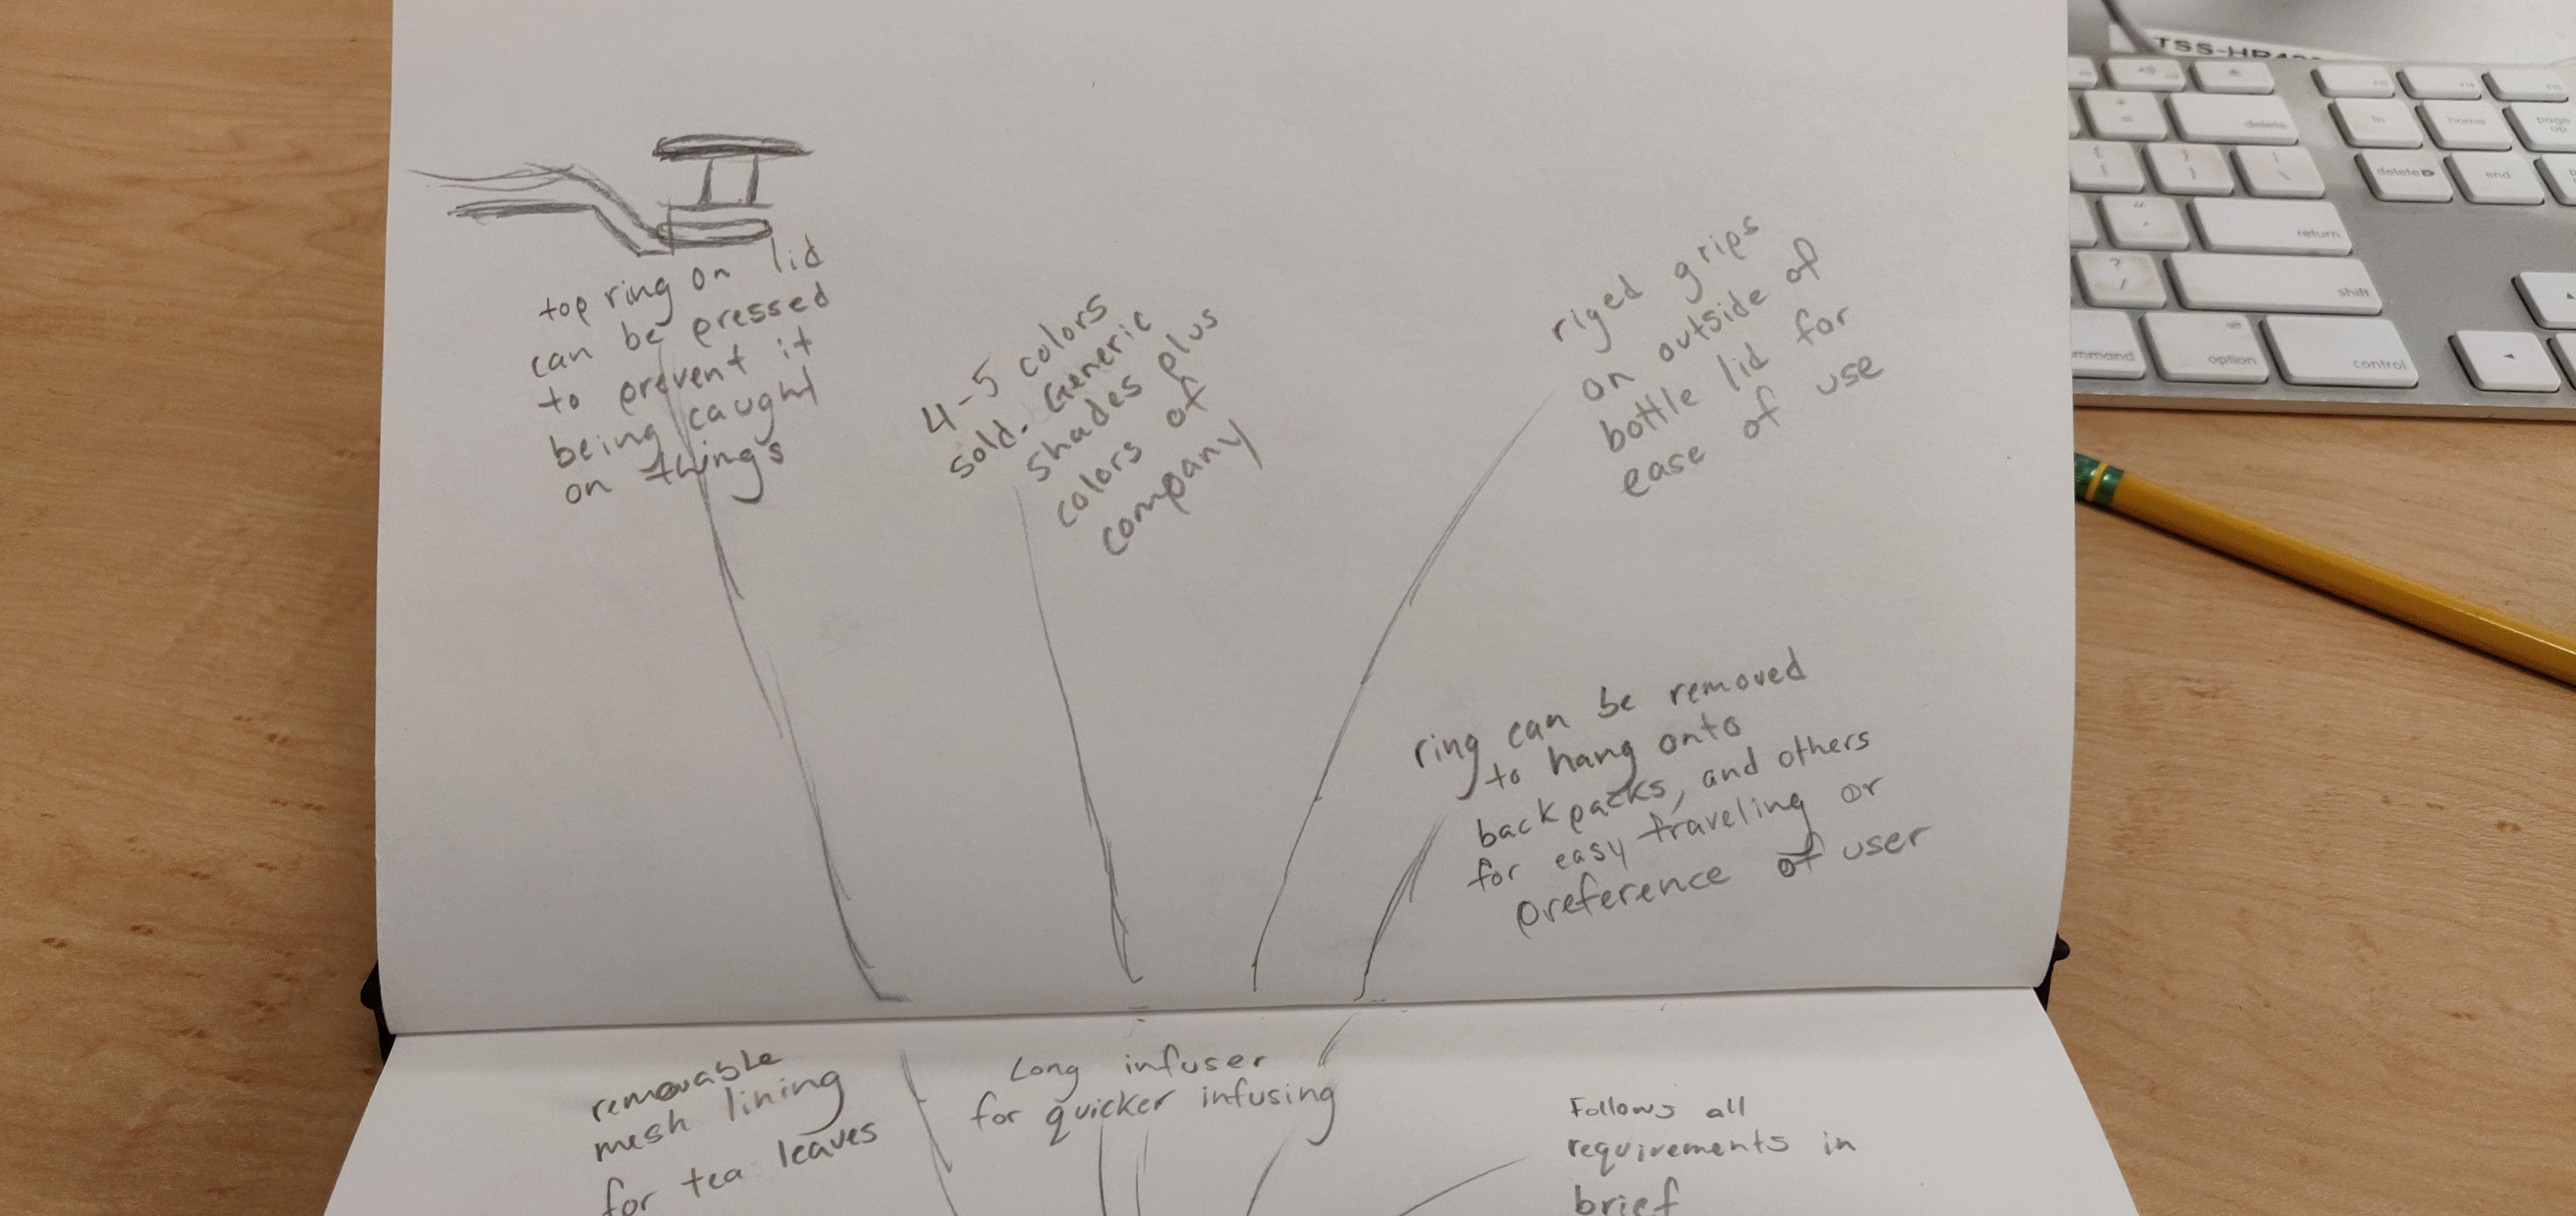 top ring on lid
can be pressed
to prevent it
being caught
on things
4-5 colors
sold. Generic
shades plus
colors of
company
riged grips
on outside of
bottle lid for
ease of use
ring can be removed
to hang onto
backpacks, and others
for easy traveling or
preference of user
removable
mesh lining
for tea leaves
Long infuser
for quicker infusing
Follows all
requirements in
brief
delete
home
page
up
delete
end
return
shift
option
control